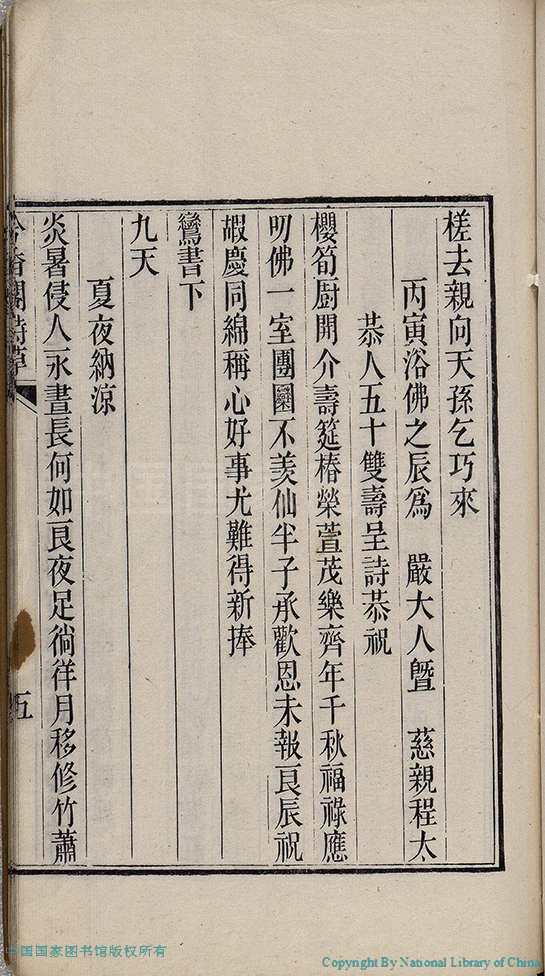 槎去親向天孫乞巧來
丙寅浴佛之辰爲　嚴大人曁　慈親程太
恭人五十雙壽呈詩恭祝
櫻筍厨開介壽筵椿榮萱茂樂齊年千秋福祿應
叨佛一室團圞不羡仙半子承歡恩未報良辰祝
嘏慶同綿稱心好事尤難得新捧
鸞書下
九天
夏夜納涼
炎暑侵人永晝長何如良夜足徜徉月移修竹蕭
閣詩草
五
中国国家图书馆版权所有
Copyright By National Library of China